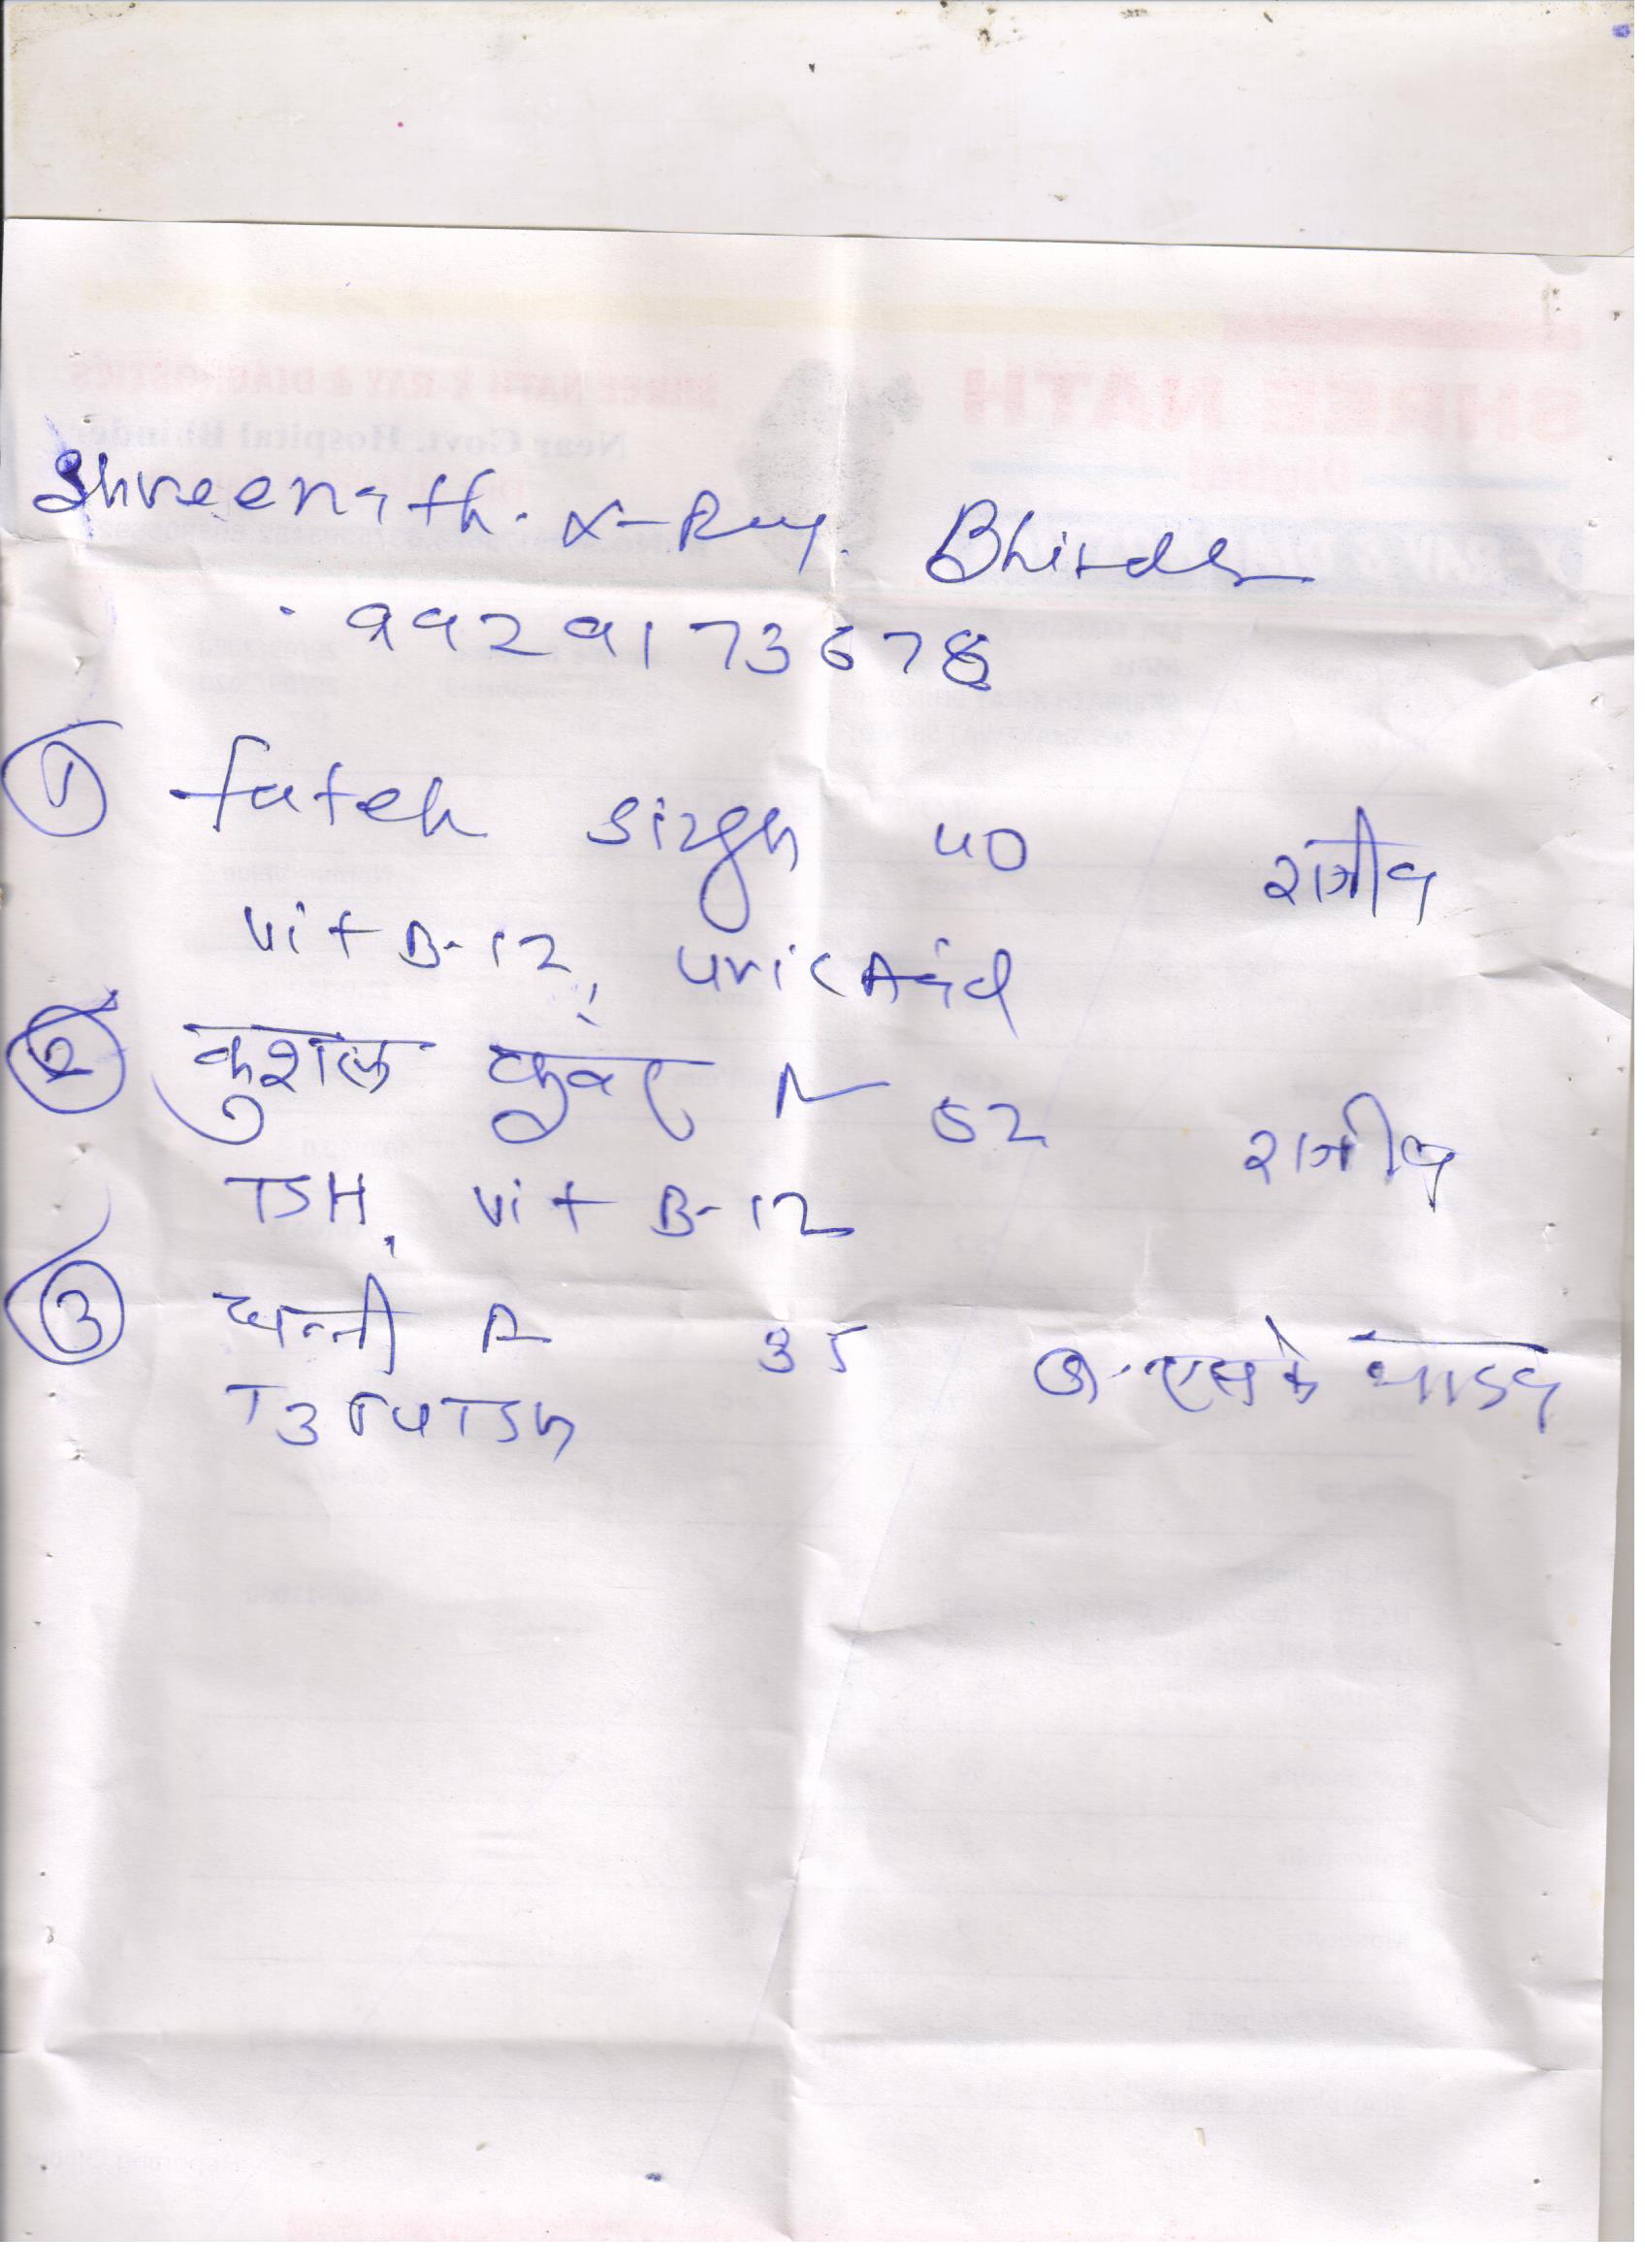 Shreenath. X-Ray. Bhinder
9929173678
① Fateh Singh 40 राजीव
Vit B-12, Uric Acid
② कुशल कुवंर 52 राजीव
TSH, Vit B-12
③ 35 एस के
T3 T4 TSH